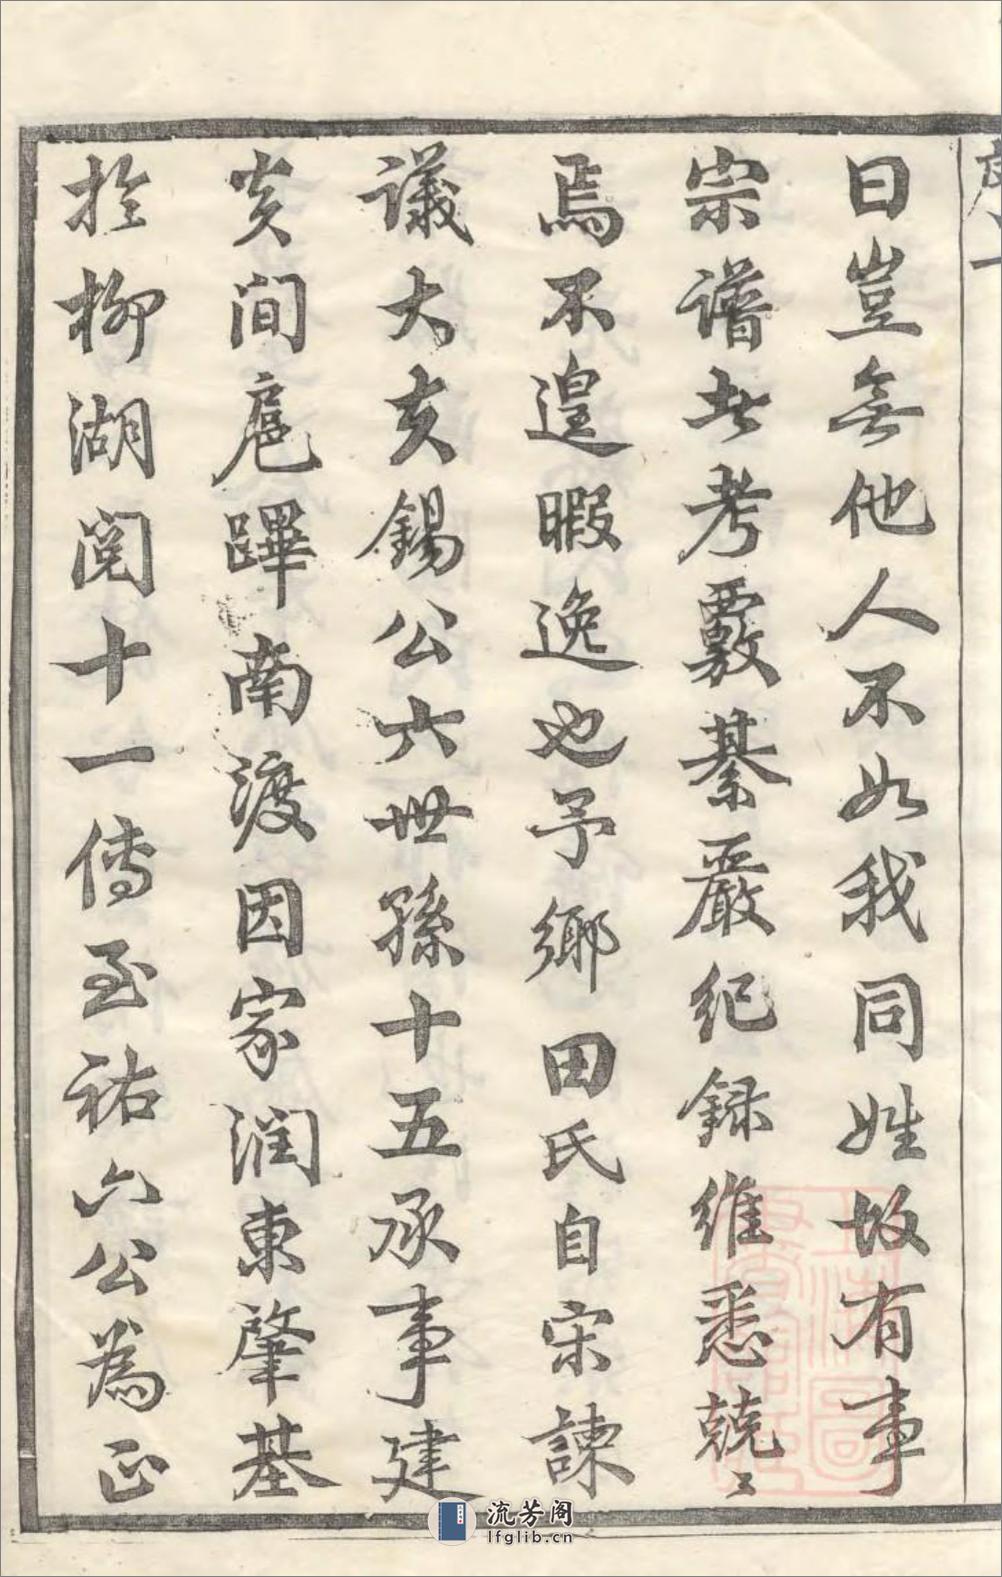 曰豈無他人不如我同姓故有事
宗譜者考覈綦嚴紀録維悉兢〻
焉不遑暇逸也予鄉田氏自宋諫
議大夫錫公六世孫十五承事建
炎間扈蹕南渡因家润東肇基
扵柳湖閲十一傳至祐六公為正
流芳阁
lfglib.cn